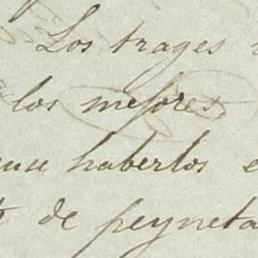 Los trages
los mejores
haberlos e
de peyneta